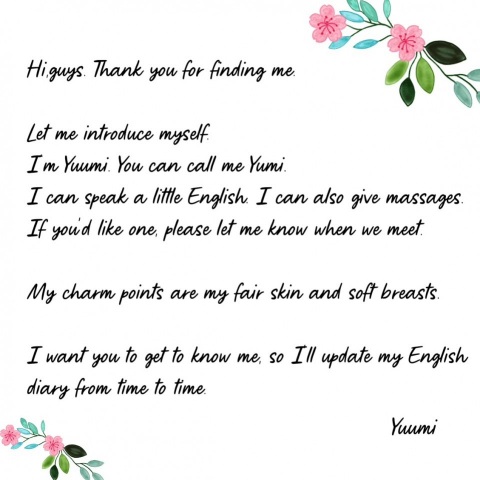 Hi,guys. Thank you for finding me.
Let me introduce myself.
I'm Yuumi. You can call me Yumi.
I can speak a little English. I can also give massages.
If you'd like one, please let me know when we meet.
My charm points are my fair skin and soft breasts.
I want you to get to know me, so I'll update my English
diary from time to time.
Yuumi